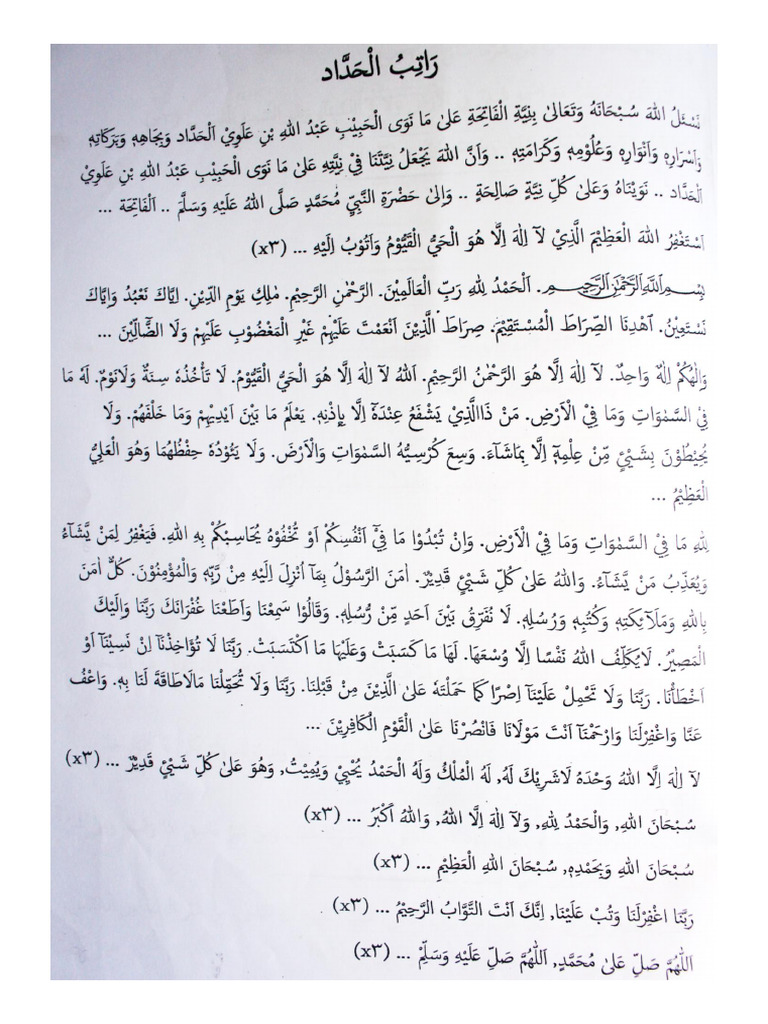 رَاتِبُ الْحَدَّاد
نَسْئَلُ اللهَ سُبْحَانَهُ وَتَعَالىٰ بِنِيَّةِ الْفَاتِحَةِ عَلىٰ مَا نَوَى الْحَبِيْبِ عَبْدُ اللهِ بْنِ عَلَوِيْ اَلْحَدَّاد وَبِجَاهِهٖ وَبَرَكَاتِهٖ
وَاَسْرَارِهٖ وَاَنْوَارِهٖ وَعُلُوْمِهٖ وَكَرَامَتِهٖ .. وَاَنَّ اللهَ يَجْعَلُ نِيَّتَنَا فِيْ نِيَّتِهٖ عَلىٰ مَا نَوَى الْحَبِيْبِ عَبْدُ اللهِ بْنِ عَلَوِيْ
اَلْحَدَّاد .. نَوَيْنَاهُ وَعَلىٰ كُلِّ نِيَّةٍ صَالِحَةٍ .. وَاِلىٰ حَضْرَةِ النَّبِيِّ مُحَمَّدٍ صَلَّى اللهُ عَلَيْهِ وَسَلَّمَ .. اَلْفَاتِحَة ...
اَسْتَغْفِرُ اللهَ الْعَظِيْمَ الَّذِيْ لَآ اِلٰهَ اِلَّا هُوَ الْحَيُّ الْقَيُّوْمُ وَاَتُوْبُ اِلَيْهِ ... (x٣)
بِسْمِ اللهِ الرَّحْمٰنِ الرَّحِيْمِ. اَلْحَمْدُ لِلهِ رَبِّ الْعَالَمِيْنَ. الرَّحْمٰنِ الرَّحِيْمِ. مٰلِكِ يَوْمِ الدِّيْنِ. اِيَّاكَ نَعْبُدُ وَاِيَّاكَ
نَسْتَعِيْنُ. اَهْدِنَا الصِّرَاطَ الْمُسْتَقِيْمَ. صِرَاطَ الَّذِيْنَ اَنْعَمْتَ عَلَيْهِمْ غَيْرِ الْمَغْضُوْبِ عَلَيْهِمْ وَلَا الضَّآلِّيْنَ ...
وَاِلٰهُكُمْ اِلٰهٌ وَاحِدٌ. لَآ اِلٰهَ اِلَّا هُوَ الرَّحْمٰنُ الرَّحِيْمِ. اَللهُ لَآ اِلٰهَ اِلَّا هُوَ الْحَيُّ الْقَيُّوْمُ. لَا تَأْخُذُهٗ سِنَةٌ وَلَانَوْمٌ. لَهٗ مَا
فِيْ السَّمٰوَاتِ وَمَا فِيْ الْاَرْضِ. مَنْ ذَاالَّذِيْ يَشْفَعُ عِنْدَهٗٓ اِلَّا بِإِذْنِهٖ. يَعْلَمُ مَا بَيْنَ اَيْدِيْهِمْ وَمَا خَلْفَهُمْ. وَلَا
يُحِيْطُوْنَ بِشَيْئٍ مِّنْ عِلْمِهٖٓ اِلَّا بِمَاشَآءَ. وَسِعَ كُرْسِيُّهُ السَّمٰوَاتِ وَالْاَرْضَ. وَلَا يَئُوْدُهٗ حِفْظُهُمَا وَهُوَ الْعَلِيُّ
الْعَظِيْمُ ...
لِلهِ مَا فِيْ السَّمٰوَاتِ وَمَا فِيْ الْاَرْضِ. وَاِنْ تُبْدُوْا مَا فِيْٓ اَنْفُسِكُمْ اَوْ تُخْفُوْهُ يُحَاسِبْكُمْ بِهِ اللهِ. فَيَغْفِرُ لِمَنْ يَّشَآءُ
وَيُعَذِّبُ مَنْ يَّشَآءُ. وَاللهُ عَلىٰ كُلِّ شَيْئٍ قَدِيْرٌ. اٰمَنَ الرَّسُوْلُ بِمَآ اُنْزِلَ اِلَيْهِ مِنْ رَبِّهٖ وَالْمُؤْمِنُوْنَ. كُلٌّ اٰمَنَ
بِاللهِ وَمَلَآئِكَتِهٖ وَكُتُبِهٖ وَرُسُلِهٖ. لَا نُفَرِّقُ بَيْنَ اَحَدٍ مِّنْ رُّسُلِهٖ. وَقَالُوْا سَمِعْنَا وَاَطَعْنَا غُفْرَانَكَ رَبَّنَا وَاِلَيْكَ
الْمَصِيْرُ. لَايُكَلِّفُ اللهُ نَفْسًا اِلَّا وُسْعَهَا. لَهَا مَا كَسَبَتْ وَعَلَيْهَا مَا اكْتَسَبَتْ. رَبَّنَا لَا تُؤَاخِذْنَآ اِنْ نَسِيْنَآ اَوْ
اَخْطَأْنَا. رَبَّنَا وَلَا تَحْمِلْ عَلَيْنَآ اِصْرًا كَمَا حَمَلْتَهٗ عَلىٰ الَّذِيْنَ مِنْ قَبْلِنَا. رَبَّنَا وَلَا تُحَمِّلْنَا مَالَاطَاقَةَ لَنَا بِهٖ. وَاعْفُ
عَنَّا وَاغْفِرْلَنَا وَارْحَمْنَآ اَنْتَ مَوْلَانَا فَانْصُرْنَا عَلىٰ الْقَوْمِ الْكَافِرِيْنَ ...
لَآ اِلٰهَ اِلَّا اللهُ وَحْدَهٗ لَاشَرِيْكَ لَهٗ, لَهُ الْمُلْكُ وَلَهُ الْحَمْدُ يُحْيِيْ وَيُمِيْتُ, وَهُوَ عَلىٰ كُلِّ شَيْئٍ قَدِيْرٌ ... (x٣)
سُبْحَانَ اللهِ, وَالْحَمْدُ لِلهِ, وَلَآ اِلٰهَ اِلَّا اللهُ, وَاللهُ اَكْبَرُ ... (x٣)
سُبْحَانَ اللهِ وَبِحَمْدِهٖ, سُبْحَانَ اللهِ الْعَظِيْمِ ... (x٣)
رَبَّنَا اغْفِرْلَنَا وَتُبْ عَلَيْنَا, اِنَّكَ اَنْتَ التَّوَّابُ الرَّحِيْمُ ... (x٣)
اَللّٰهُمَّ صَلِّ عَلىٰ مُحَمَّدٍ, اَللّٰهُمَّ صَلِّ عَلَيْهِ وَسَلِّمْ ... (x٣)